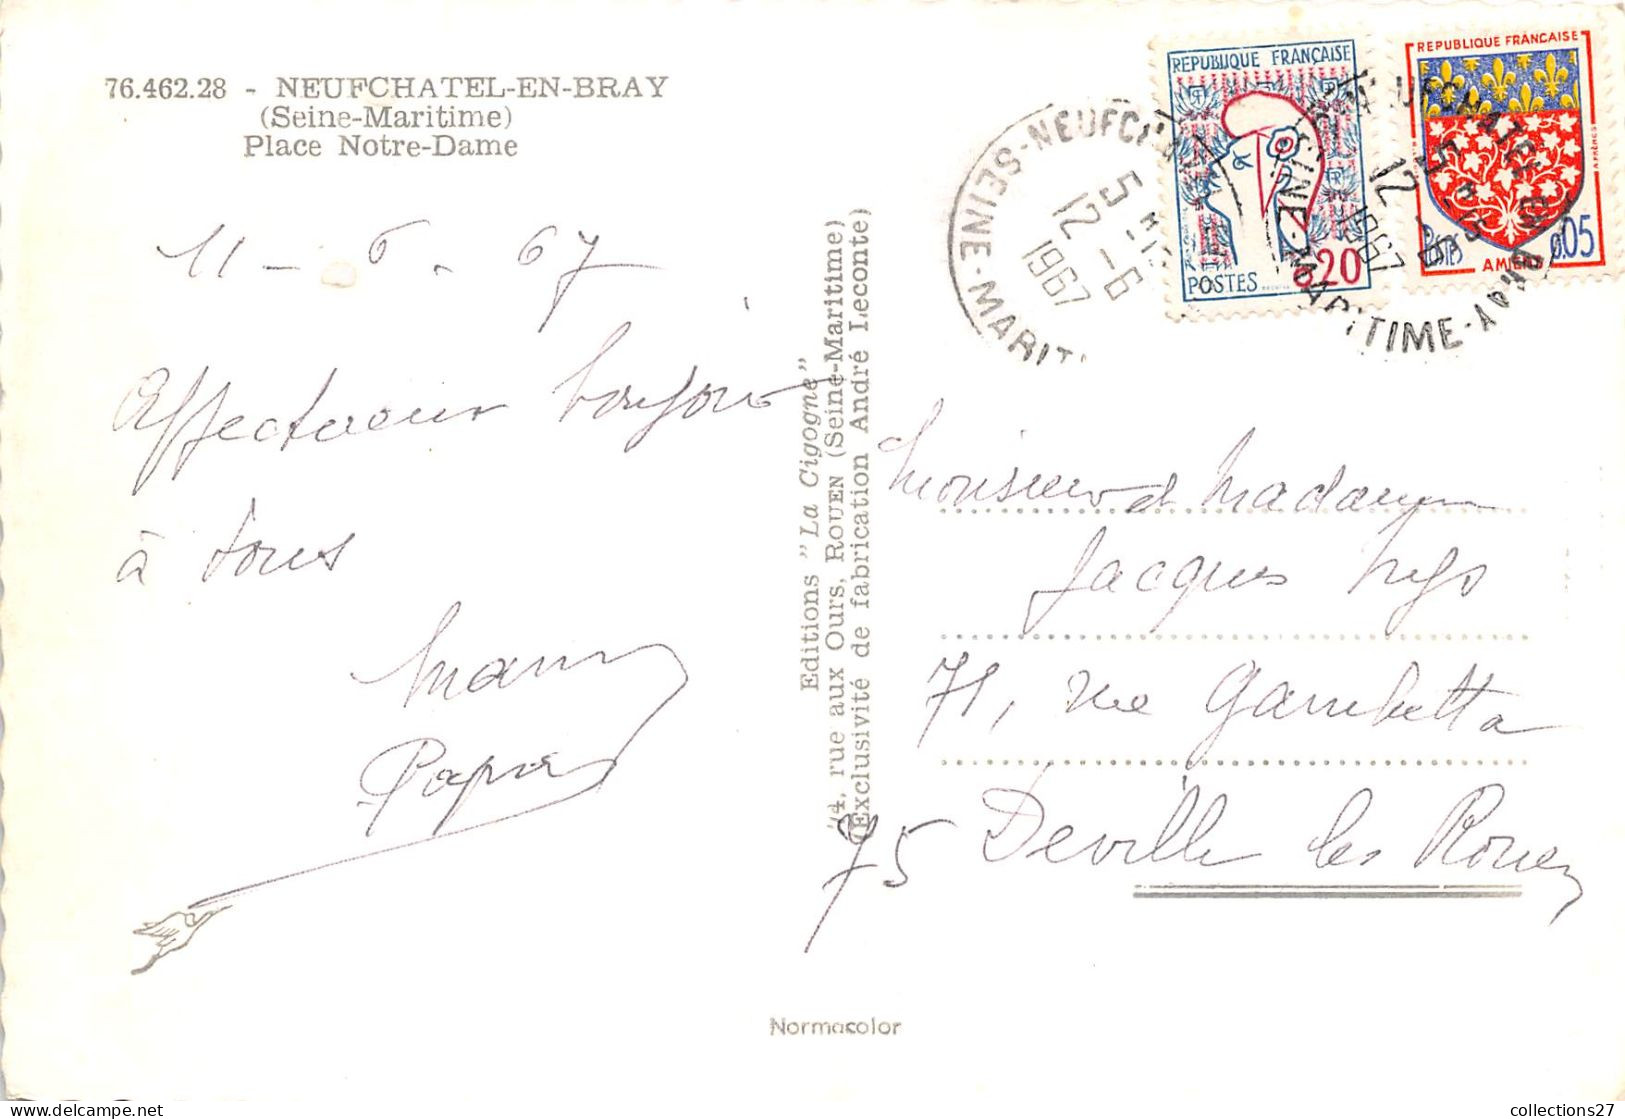 76.462.28 - NEUFCHATEL-EN-BRAY
(Seine-Maritime)
Place Notre-Dame
11 - 6 - 67
Affectueux bonjour
à tous
Maman
Papa
Editions "La Cigogne"
74, rue aux Ours, ROUEN (Seine-Maritime)
(Exclusivité de fabrication André Leconte)
REPUBLIQUE FRANÇAISE
POSTES
0,20
REPUBLIQUE FRANÇAISE
Postes
0,05
AMIENS
SEINE-MARITIME
12 -6
1967
NEUFCHATEL EN BRAY
SEINE-MARITIME
12 -6
1967
Monsieur et Madame
Jacques
71, rue Gambetta
75 Deville les Rouen
Normacolor
collections27